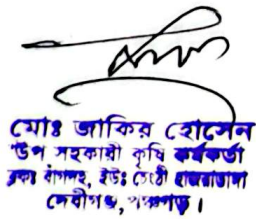 মোঃ জাকির হোসেন
উপ সহকারী কৃষি কর্মকর্তা
ব্লকঃ বাগদহ, ইউঃ চেংঠী হাজরাডাঙ্গা
দেবীগঞ্জ, পঞ্চগড়।